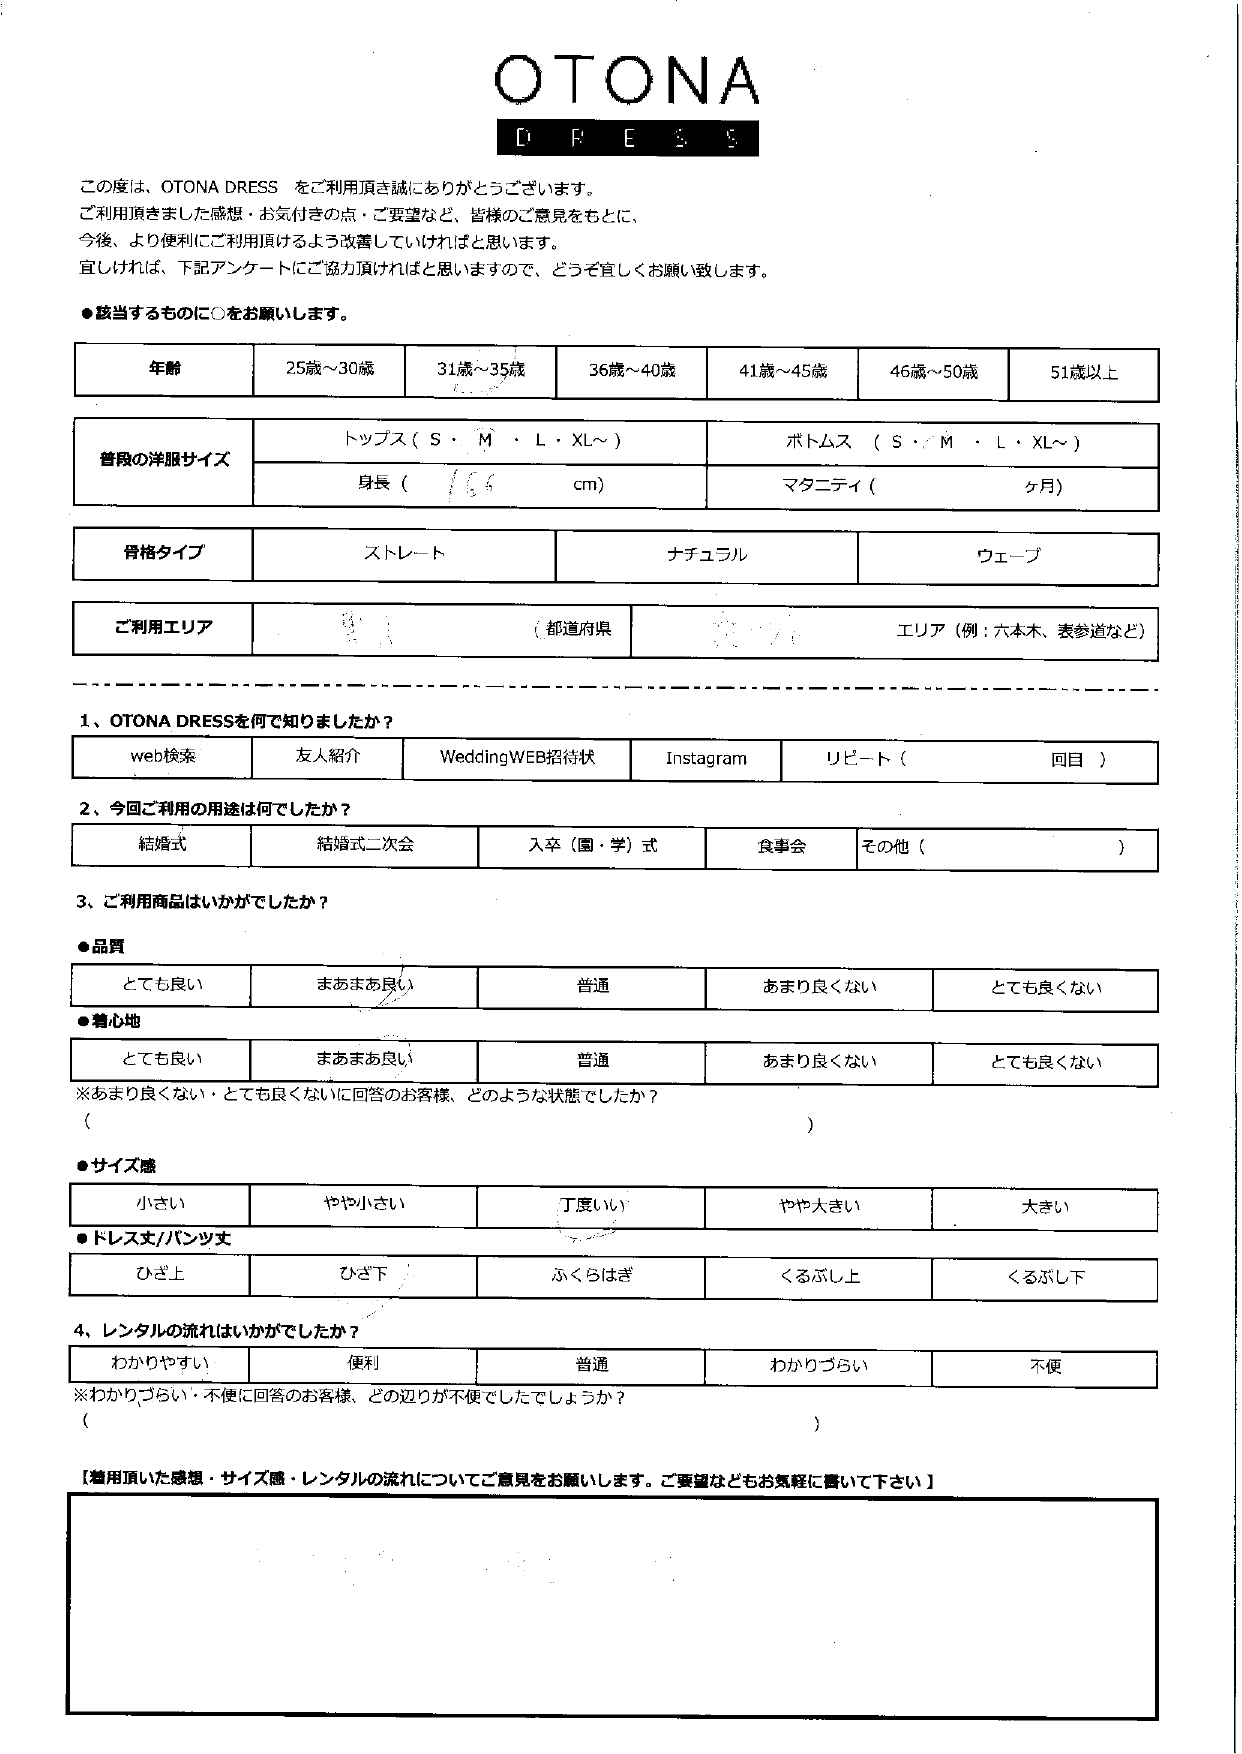 OTONA
DRESS
この度は、OTONA DRESS をご利用頂き誠にありがとうございます。
ご利用頂きました感想・お気付きの点・ご要望など、皆様のご意見をもとに、
今後、より便利にご利用頂けるよう改善していければと思います。
宜しければ、下記アンケートにご協力頂ければと思いますので、どうぞ宜しくお願い致します。
●該当するものに○をお願いします。
年齢 25歳～30歳 31歳～35歳 36歳～40歳 41歳～45歳 46歳～50歳 51歳以上
普段の洋服サイズ トップス ( S ・ M ・ L ・ XL～ ) ボトムス ( S ・ M ・ L ・ XL～ )
身長 ( 166 cm) マタニティ ( ヶ月)
骨格タイプ ストレート ナチュラル ウェーブ
ご利用エリア ( 都道府県 エリア（例：六本木、表参道など）
1、OTONA DRESSを何で知りましたか？
web検索 友人紹介 WeddingWEB招待状 Instagram リピート（ 回目 ）
2、今回ご利用の用途は何でしたか？
結婚式 結婚式二次会 入卒（園・学）式 食事会 その他（ ）
3、ご利用商品はいかがでしたか？
●品質
とても良い まあまあ良い 普通 あまり良くない とても良くない
●着心地
とても良い まあまあ良い 普通 あまり良くない とても良くない
※あまり良くない・とても良くないに回答のお客様、どのような状態でしたか？
( )
●サイズ感
小さい やや小さい 丁度いい やや大きい 大きい
●ドレス丈/パンツ丈
ひざ上 ひざ下 ふくらはぎ くるぶし上 くるぶし下
4、レンタルの流れはいかがでしたか？
わかりやすい 便利 普通 わかりづらい 不便
※わかりづらい・不便に回答のお客様、どの辺りが不便でしたでしょうか？
( )
【着用頂いた感想・サイズ感・レンタルの流れについてご意見をお願いします。ご要望などもお気軽に書いて下さい 】